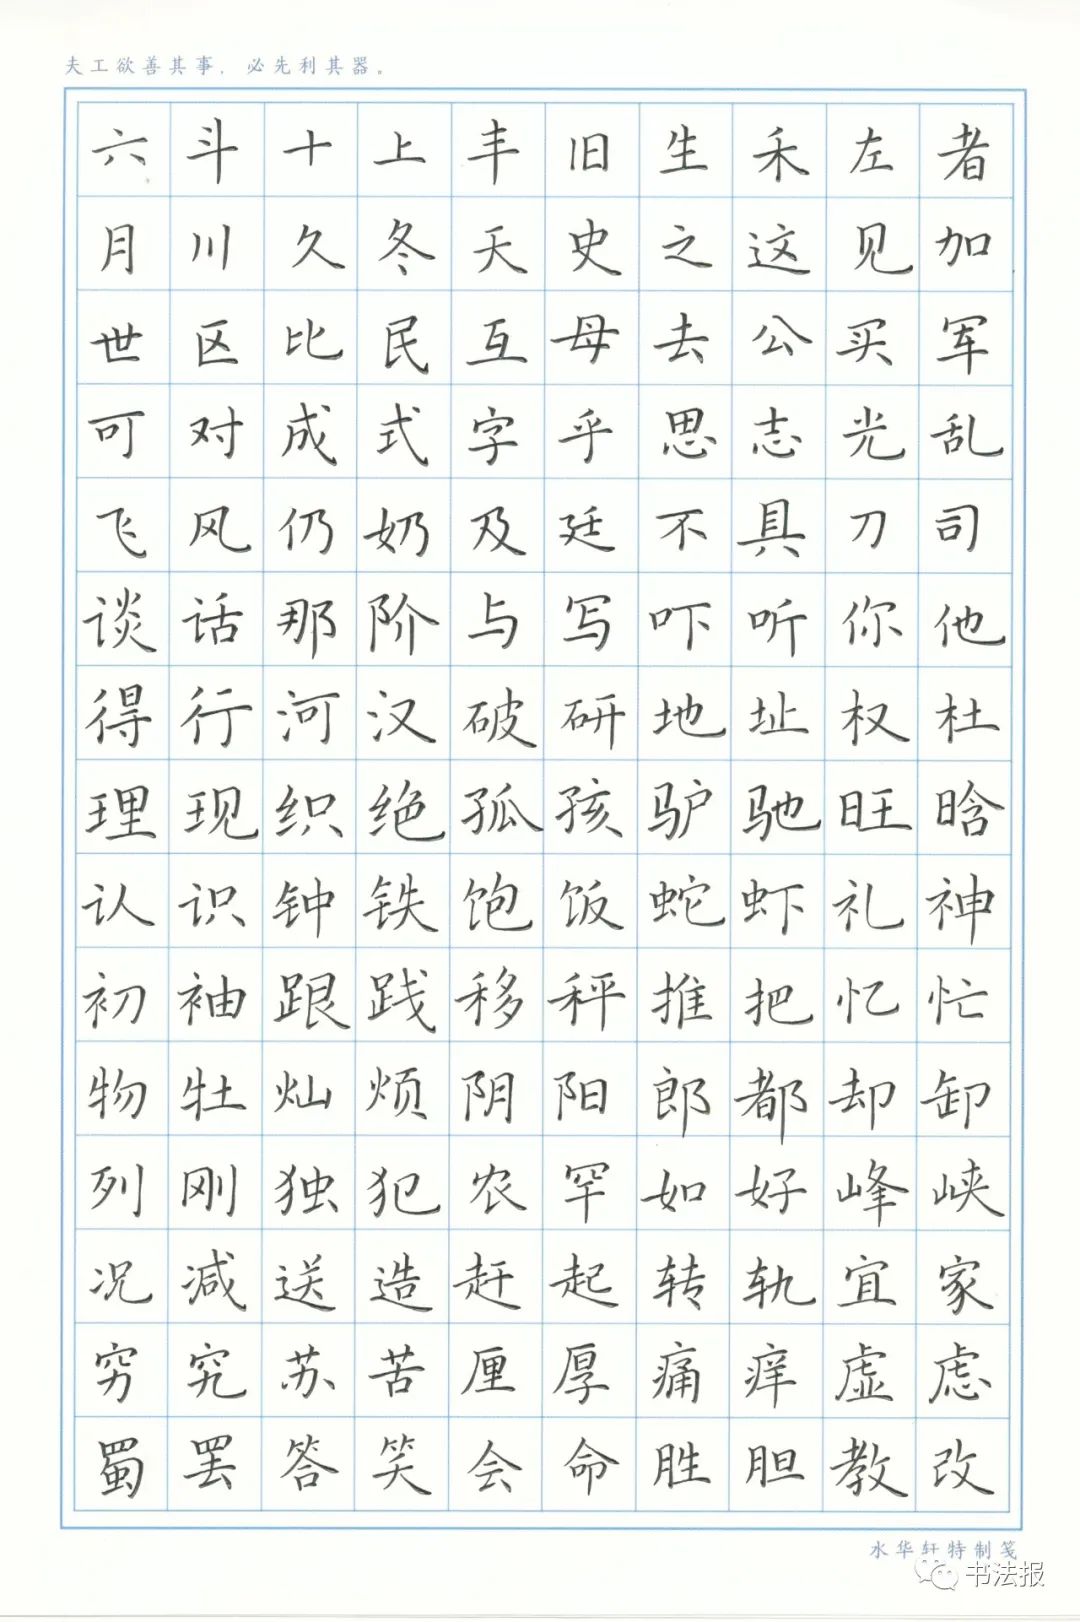 夫工欲善其事，必先利其器。
六斗十上丰旧生禾左者
月川久冬天史之这见加
世区比民互母去公买军
可对成式字乎思志光乱
飞风仍奶及廷不具刀司
谈话那阶与写吓听你他
得行河汉破研地址权杜
理现织绝孤孩驴驰旺晗
认识钟铁饱饭蛇虾礼神
初袖跟践移秤推把忆忙
物牡灿烦阴阳郎都却卸
列刚独犯农罕如好峰峡
况减送造赶起转轨宜家
穷究苏苦厘厚痛痒虚虑
蜀罢答笑会命胜胆教改
水华轩特制笺
书法报